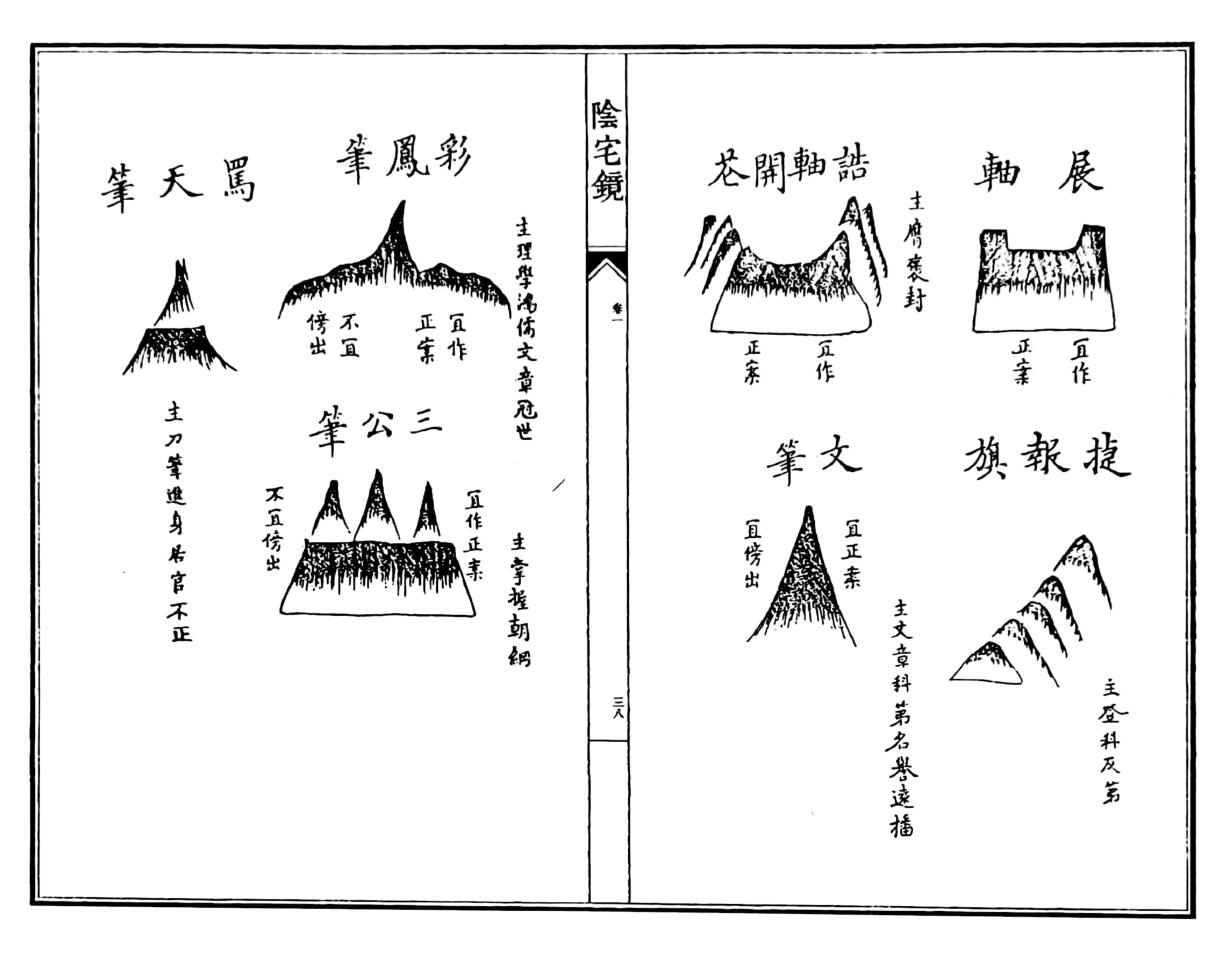 展軸
宜作
正案
捷報旗
主登科及第
誥軸開花
主膺褒封
宜作
正案
文筆
宜正案
宜傍出
主文章科第名譽遠播
陰宅鏡
卷一
三八
彩鳳筆
主理學鴻儒文章冠世
宜作
正案
不宜
傍出
三公筆
主掌握朝綱
宜作正案
不宜傍出
罵天筆
主刀筆進身居官不正